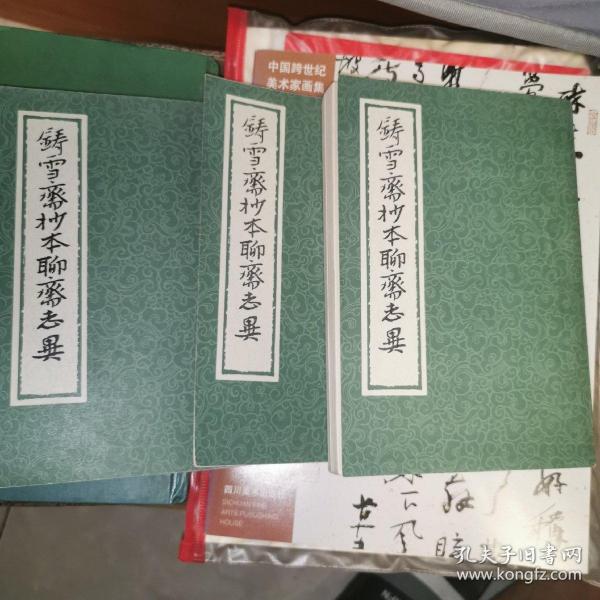 鑄雪齋抄本聊齋志異
鑄雪齋抄本聊齋志異
鑄雪齋抄本聊齋志異
中国跨世纪
美术家画集
四川美术出版社
SICHUAN FINE
ARTS PUBLISHING
HOUSE
孔夫子旧书网
www.kongfz.com